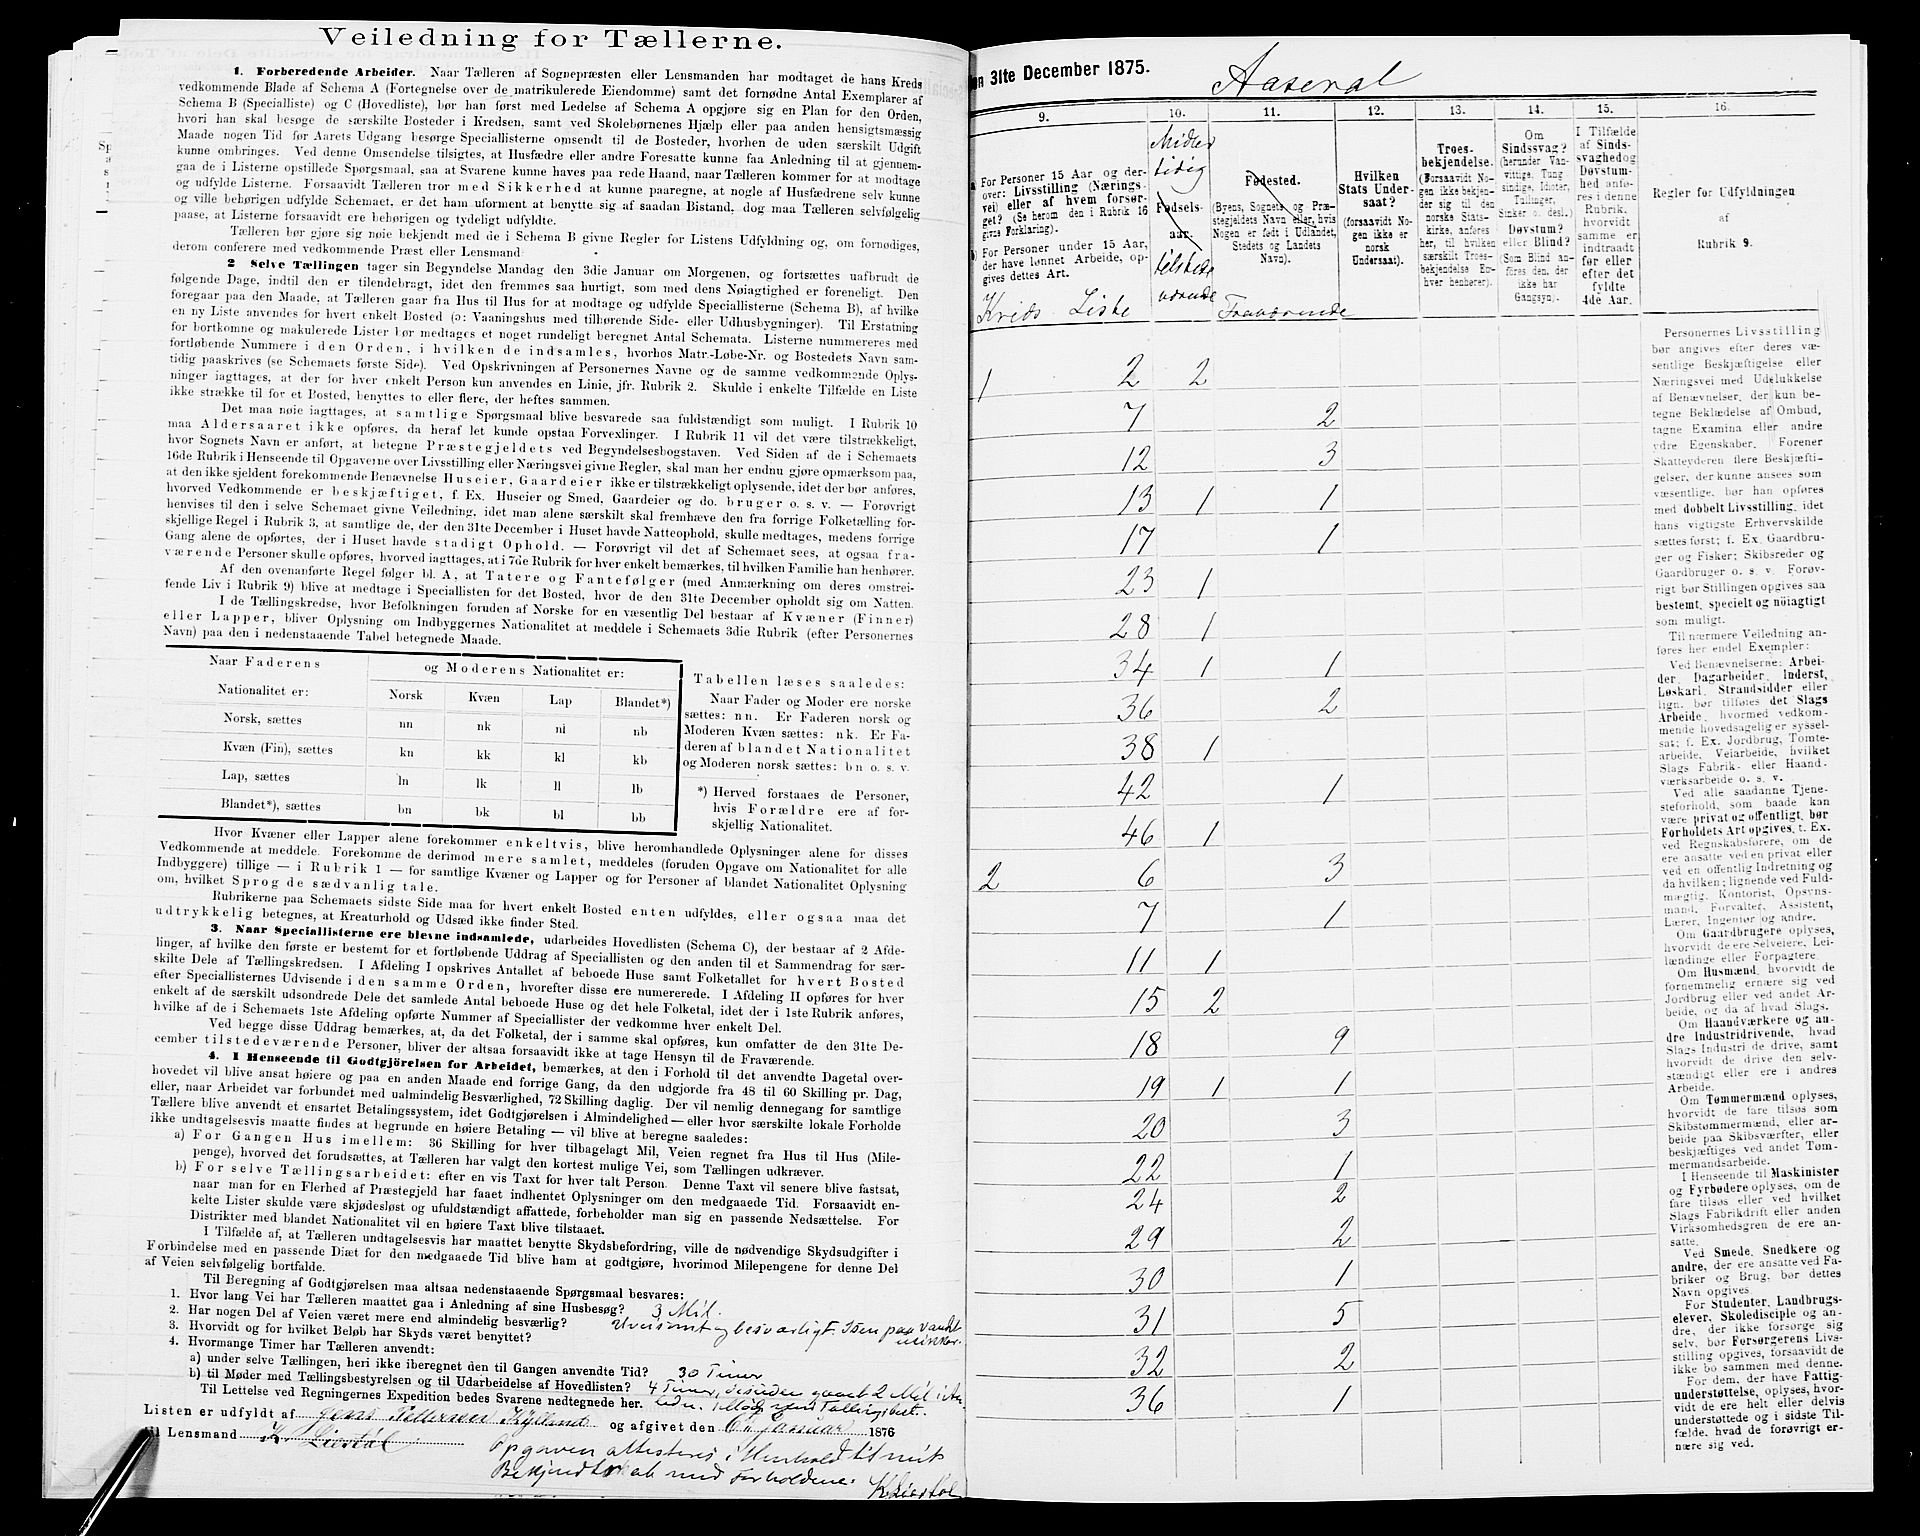 Veiledning for Tællerne.
1. Forberedende Arbeider. Naar Tælleren af Sognepræsten eller Lensmanden har modtaget de hans Kreds
vedkommende Blade af Schema A (Fortegnelse over de matrikulerede Eiendomme) samt det fornødne Antal Exemplarer af
Schema B (Specialliste) og C (Hovedliste), bør han først med Ledelse af Schema A opgjøre sig en Plan for den Orden,
hvori han skal besøge de særskilte Bosteder i Kredsen, samt ved Skolebørnenes Hjælp eller paa anden hensigtsmæssig
Maade nogen Tid før Aarets Udgang besørge Speciallisterne omsendt til de Bosteder, hvorhen de uden særskilt Udgift
kunne ombringes. Ved denne Omsendelse tilsigtes, at Husfædre eller andre Foresatte kunne faa Anledning til at gjennem-
gaa de i Listerne opstillede Spørgsmaal, saa at Svarene kunne haves paa rede Haand, naar Tælleren kommer for at modtage
og udfylde Listerne. Forsaavidt Tælleren tror med Sikkerhed at kunne paaregne, at nogle af Husfædrene selv kunne
og ville behørigen udfylde Schemaet, er det ham uforment at benytte sig af saadan Bistand, dog maa Tælleren selvfølgelig
paase, at Listerne forsaavidt ere behørigen og tydeligt udfyldte.
Tælleren bør gjøre sig nøie bekjendt med de i Schema B givne Regler for Listens Udfyldning og, om fornødiges,
derom conferere med vedkommende Præst eller Lensmand.
2 Selve Tællingen tager sin Begyndelse Mandag den 3die Januar om Morgenen, og fortsættes uafbrudt de
følgende Dage, indtil den er tilendebragt, idet den fremmes saa hurtigt, som med dens Nøiagtighed er foreneligt. Den
foregaar paa den Maade, at Tælleren gaar fra Hus til Hus for at modtage og udfylde Speciallisterne (Schema B), af hvilke
en ny Liste anvendes for hvert enkelt Bosted (ɔ: Vaaningshus med tilhørende Side- eller Udhusbygninger). Til Erstatning
for bortkomne og makulerede Lister bør medtages et noget rundeligt beregnet Antal Schemata. Listerne nummereres med
fortløbende Nummere i den Orden, i hvilken de indsamles, hvorhos Matr.-Løbe-Nr. og Bostedets Navn sam-
tidig paaskrives (se Schemaets første Side). Ved Opskrivningen af Personernes Navne og de samme vedkommende Oplys-
ninger iagttages, at der for hver enkelt Person kun anvendes en Linie, jfr. Rubrik 2. Skulde i enkelte Tilfælde en Liste
ikke strække til for et Bosted, benyttes to eller flere, der heftes sammen.
Det maa nøie iagttages, at samtlige Spørgsmaal blive besvarede saa fuldstændigt som muligt. I Rubrik 10
maa Aldersaaret ikke opføres, da heraf let kunde opstaa Forvexlinger. I Rubrik 11 vil det være tilstrækkeligt,
hvor Sognets Navn er anført, at betegne Præstegjeldets ved Begyndelsesbogstaven. Ved Siden af de i Schemaets
16de Rubrik i Henseende til Opgaverne over Livsstilling eller Næringsvei givne Regler, skal man her endnu gjøre opmærksom paa,
at den ikke sjeldent forekommende Benævnelse Huseier, Gaardeier ikke er tilstrækkeligt oplysende, idet der bør anføres,
hvorved Vedkommende er beskjæftiget, f. Ex. Huseier og Smed, Gaardeier og do. bruger o. s. v. — Forøvrigt
henvises til den i selve Schemaet givne Veiledning, idet man alene særskilt skal fremhæve den fra forrige Folketælling for-
skjellige Regel i Rubrik 3, at samtlige de, der den 31te December i Huset havde Natteophold, skulle medtages, medens forrige
Gang alene de opførtes, der i Huset havde stadigt Ophold. — Forøvrigt vil det af Schemaet sees, at ogsaa fra-
værende Personer skulle opføres, hvorved iagttages, at i 7de Rubrik for hver enkelt bemærkes, til hvilken Familie han henhører.
Af den ovenanførte Regel følger bl. A, at Tatere og Fantefølger (med Anmærkning om deres omstrei-
fende Liv i Rubrik 9) blive at medtage i Speciallisten for det Bosted, hvor de den 31te December opholdt sig om Natten.
I de Tællingskredse, hvor Befolkningen foruden af Norske for en væsentlig Del bestaar af Kvæner (Finner)
eller Lapper, bliver Oplysning om Indbyggernes Nationalitet at meddele i Schemaets 3die Rubrik (efter Personernes
Navn) paa den i nedenstaaende Tabel betegnede Maade.
Naar Faderens og Moderens Nationalitet er:
Nationalitet er: Norsk Kvæn Lap Blandet*)
Norsk, sættes nn nk nl nb
Kvæn (Fin), sættes kn kk kl kb
Lap, sættes ln lk ll lb
Blandet*), sættes bn bk bl bb
Tabellen læses saaledes:
Naar Fader og Moder ere norske
sættes: nn. Er Faderen norsk og
Moderen Kvæn sættes: nk. Er Fa-
deren af blandet Nationalitet
og Moderen norsk sættes: bn o. s. v.
*) Herved forstaaes de Personer,
hvis Forældre ere af for-
skjellig Nationalitet.
Hvor Kvæner eller Lapper alene forekommer enkeltvis, blive heromhandlede Oplysninger alene for disses
Vedkommende at meddele. Forekomme de derimod mere samlet, meddeles (foruden Opgave om Nationalitet for alle
Indbyggere) tillige — i Rubrik 1 — for samtlige Kvæner og Lapper og for Personer af blandet Nationalitet Oplysning
om, hvilket Sprog de sædvanlig tale.
Rubrikerne paa Schemaets sidste Side maa for hvert enkelt Bosted enten udfyldes, eller ogsaa maa det
udtrykkelig betegnes, at Kreaturhold og Udsæd ikke finder Sted.
3. Naar Speciallisterne ere blevne indsamlede, udarbeides Hovedlisten (Schema C), der bestaar af 2 Afde-
linger, af hvilke den første er bestemt for et fortløbende Uddrag af Speciallisten og den anden til et Sammendrag for sær-
skilte Dele af Tællingskredsen. I Afdeling I opskrives Antallet af beboede Huse samt Folketallet for hvert Bosted
efter Speciallisternes Udvisende i den samme Orden, hvorefter disse ere numererede. I Afdeling II opføres for hver
enkelt af de særskilt udsondrede Dele det samlede Antal beboede Huse og det hele Folketal, idet der i 1ste Rubrik anføres,
hvilke af de i Schemaets 1ste Afdeling opførte Nummer af Speciallister der vedkomme hver enkelt Del.
Ved begge disse Uddrag bemærkes, at, da det Folketal, der i samme skal opføres, kun omfatter de den 31te De-
cember tilstedeværende Personer, bliver der altsaa forsaavidt ikke at tage Hensyn til de Fraværende.
4. I Henseende til Godtgjörelsen for Arbeidet, bemærkes, at den i Forhold til det anvendte Dagetal over-
hovedet vil blive ansat høiere og paa en anden Maade end forrige Gang, da den udgjorde fra 48 til 60 Skilling pr. Dag,
eller, naar Arbeidet var forbundet med ualmindelig Besværlighed, 72 Skilling daglig. Der vil nemlig dennegang for samtlige
Tællere blive anvendt et ensartet Betalingssystem, idet Godtgjørelsen i Almindelighed — eller hvor særskilte lokale Forholde
ikke undtagelsesvis maatte findes at begrunde en høiere Betaling — vil blive at beregne saaledes:
a) For Gangen Hus imellem: 36 Skilling for hver tilbagelagt Mil, Veien regnet fra Hus til Hus (Mile-
penge), hvorved det forudsættes, at Tælleren har valgt den kortest mulige Vei, som Tællingen udkræver.
b) For selve Tællingsarbeidet: efter en vis Taxt for hver talt Person. Denne Taxt vil senere blive fastsat,
naar man for en Flerhed af Præstegjeld har faaet indhentet Oplysninger om den medgaaede Tid. Forsaavidt en-
kelte Lister skulde være skjødesløst og ufuldstændigt affattede, forbeholder man sig en passende Nedsættelse. For
Distrikter med blandet Nationalitet vil en høiere Taxt blive tilstaaet.
I Tilfælde af, at Tælleren undtagelsesvis har maattet benytte Skydsbefordring, ville de nødvendige Skydsudgifter i
Forbindelse med en passende Diæt for den medgaaede Tid blive ham at godtgjøre, hvorimod Milepengene for denne Del
af Veien selvfølgelig bortfalde.
Til Beregning af Godtgjørelsen maa altsaa nedenstaaende Spørgsmaal besvares:
1. Hvor lang Vei har Tælleren maattet gaa i Anledning af sine Husbesøg? 3 Mil.
2. Har nogen Del af Veien været mere end almindelig besværlig? Uveisomt og besværligt. Isen paa Vandet
3. Hvorvidt og for hvilket Beløb har Skyds været benyttet? usikker.
4. Hvormange Timer har Tælleren anvendt:
a) under selve Tællingen, heri ikke iberegnet den til Gangen anvendte Tid? 30 Timer
b) til Møder med Tællingsbestyrelsen og til Udarbeidelse af Hovedlisten? 4 Timer, desuden gaaet 2 Mil i
Til Lettelse ved Regningernes Expedition bedes Svarene nedtegnede her.
Listen er udfyldt af Jens Pettersen Kylland og afgivet den 6te Januar 1876
til Lensmand K. Liestøl
Opgaven attesteres i Henhold til mit
Bekjendtskab med Forholdene:
K Liestøl
den 31te December 1875. Aaseral
9. 10. 11. 12. 13. 14. 15. 16.
a) For Personer 15 Aar og der-
over: Livsstilling (Nærings-
vei) eller af hvem forsør-
get? (Se herom den i Rubrik 16
givne Forklaring).
b) For Personer under 15 Aar,
der have lønnet Arbeide, op-
gives dettes Art.
Midler
tidig
Fødsels-
aar.
tilstede
værende
Fødested.
(Byens, Sognets og Præ-
stegjeldets Navn eller, hvis
Nogen er født i Udlandet,
Stedets og Landets
Navn).
Hvilken
Stats Under-
saat?
(forsaavidt No-
gen ikke er
norsk
Undersaat).
Troes-
bekjendelse.
(Forsaavidt No-
gen ikke bekjen-
der sig til den
norske Stats-
kirke, anføres
her, til hvilken
særskilt Troes-
bekjendelse En-
hver henhører).
Om
Sindssvag?
(herunder Van-
vittige, Tung-
sindige, Idioter,
Tullinger,
Sinker o. desl.).
Døvstum?
eller Blind?
(Som Blind an-
føres den, der
ikke har
Gangsyn).
I Tilfælde
af Sinds-
svaghed og
Døvstum-
hed anfø-
res i denne
Rubrik,
hvorvidt
samme er
indtraadt
før eller
efter det
fyldte
4de Aar.
Regler for Udfyldningen
af
Rubrik 9.
Kreds Liste Fraværende
1 2 2
7 2
12 3
13 1 1
17 1
23 1
28 1
34 1 1
36 2
38 1
42 1
46 1
2 6 3
7 1
11 1
15 2
18 9
19 1 1
20 3
22 1
24 2
29 2
30 1
31 5
32 2
36 1
Personernes Livsstilling
bør angives efter deres væ-
sentlige Beskjæftigelse eller
Næringsvei med Udelukkelse
af Benævnelser, der kun be-
tegne Beklædelse af Ombud,
tagne Examina eller andre
ydre Egenskaber. Forener
Skatteyderen flere Beskjæfti-
gelser, der kunne ansees som
væsentlige, bør han opføres
med dobbelt Livsstilling, idet
hans vigtigste Erhvervskilde
sættes først; f. Ex. Gaardbru-
ger og Fisker; Skibsreder og
Gaardbruger o. s. v. Forøv-
rigt bør Stillingen opgives saa
bestemt, specielt og nöiagtigt
som muligt.
Til nærmere Veiledning an-
føres her endel Exempler:
Ved Benævnelserne: Arbei-
der, Dagarbeider, Inderst,
Løskarl, Strandsidder eller
lign. bør tilføies det Slags
Arbeide, hvormed vedkom-
mende hovedsagelig er syssel-
sat; f. Ex. Jordbrug, Tomte-
arbeide, Veiarbeide, hvilket
Slags Fabrik- eller Haand-
værksarbeide o. s. v.
Ved alle saadanne Tjene-
steforhold, som baade kan
være privat og offentligt, bør
Forholdets Art opgives, f. Ex.
ved Regnskabsførere, om de
ere ansatte ved en privat eller
ved en offentlig Indretning og
da hvilken; lignende ved Fuld-
mægtig, Kontorist, Opsyns-
mand, Forvalter, Assistent,
Lærer, Ingeniør og andre.
Om Gaardbrugere oplyses,
hvorvidt de ere Selveiere, Lei-
lændinge eller Forpagtere.
Om Husmænd, hvorvidt de
fornemmelig ernære sig ved
Jordbrug eller ved andet Ar-
beide, og da af hvad Slags.
Om Haandværkere og an-
dre Industridrivende, hvad
Slags Industri de drive, samt
hvorvidt de drive den selv-
stændigt eller ere i andres
Arbeide.
Om Tømmermænd oplyses,
hvorvidt de fare tilsøs som
Skibstømmermænd, eller ar-
beide paa Skibsværfter, eller
beskjæftiges ved andet Tøm-
mermandsarbeide.
I Henseende til Maskinister
og Fyrbødere oplyses, om de
fare tilsøs eller ved hvilket
Slags Fabrikdrift eller anden
Virksomhedsgren de ere an-
satte.
Ved Smede, Snedkere og
andre, der ere ansatte ved Fa-
briker og Brug, bør dettes
Navn opgives.
For Studenter, Landbrugs-
elever, Skoledisciple og an-
dre, der ikke forsørge sig
selv, bør Forsørgerens Livs-
stilling opgives, forsaavidt de
ikke bo sammen med denne.
For dem, der have Fattig-
understøttelse, oplyses, hvor-
vidt de ere helt eller delvis
understøttede og i sidste Til-
fælde, hvad de forøvrigt er-
nære sig ved.